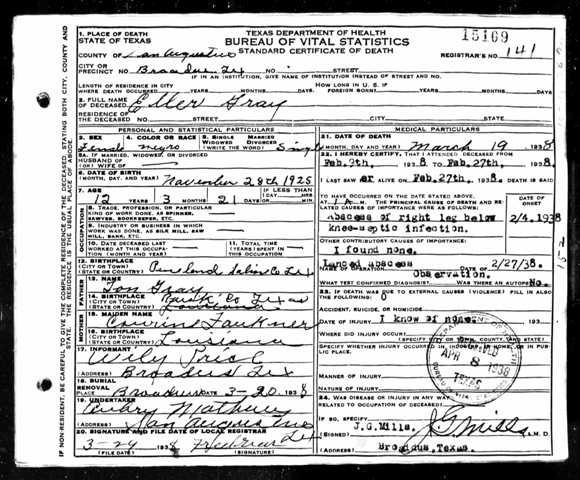 1. PLACE OF DEATH
STATE OF TEXAS
TEXAS DEPARTMENT OF HEALTH
BUREAU OF VITAL STATISTICS
STANDARD CERTIFICATE OF DEATH
15169
COUNTY OF San Augustine
REGISTRAR'S NO. 141
CITY OR
PRECINCT NO. Broaddus Tex NO. STREET
IF IN AN INSTITUTION, GIVE NAME OF INSTITUTION INSTEAD OF STREET AND NO.
LENGTH OF RESIDENCE IN CITY
WHERE DEATH OCCURRED YEARS MONTHS DAYS. HOW LONG IN U. S. IF FOREIGN BORN? YEARS MONTHS DAYS
2. FULL NAME OF DECEASED Eller Gray
RESIDENCE OF
THE DECEASED NO. STREET CITY COUNTY STATE
PERSONAL AND STATISTICAL PARTICULARS
3. SEX Female
4. COLOR OR RACE Negro
5. SINGLE MARRIED WIDOWED DIVORCED (WRITE THE WORD) Single
5A. IF MARRIED, WIDOWED, OR DIVORCED
HUSBAND OF
(OR) WIFE OF
6. DATE OF BIRTH
(MONTH, DAY, AND YEAR) November 28th 1925
7. AGE 12 YEARS 3 MONTHS 21 DAYS IF LESS THAN 1 DAY
8. TRADE, PROFESSION, OR PARTICULAR
KIND OF WORK DONE, AS SPINNER,
SAWYER, BOOKKEEPER, ETC.
9. INDUSTRY OR BUSINESS IN WHICH
WORK WAS DONE, AS SILK MILL, SAW
MILL, BANK, ETC.
10. DATE DECEASED LAST
WORKED AT THIS OCCUPATION
(MONTH AND YEAR)
11. TOTAL TIME
(YEARS) SPENT IN
THIS OCCUPATION
12. BIRTHPLACE
(CITY OR TOWN)
(STATE OR COUNTRY) Pineland Sabine Co Tex
13. NAME Tom Gray
14. BIRTHPLACE
(CITY OR TOWN) Rusk Co Texas
(STATE OR COUNTRY) Louisiana
15. MAIDEN NAME Faulkner
16. BIRTHPLACE
(CITY OR TOWN)
(STATE OR COUNTRY) Louisiana
17. INFORMANT
(ADDRESS) Broaddus Tex
18. BURIAL
REMOVAL
PLACE Broaddus DATE 3-20 1938
19. UNDERTAKER
(ADDRESS) San Augustine Tex
20. SIGNATURE AND FILE DATE OF LOCAL REGISTRAR
3-29 1938
(FILE DATE) (SIGNATURE)
MEDICAL PARTICULARS
21. DATE OF DEATH
(MONTH, DAY, AND YEAR) March 19 1938
22. I HEREBY CERTIFY, THAT I ATTENDED DECEASED FROM
Feb.9th, 1938 TO Feb.27th, 1938
I LAST SAW er ALIVE ON Feb.27th, 1938, DEATH IS SAID
TO HAVE OCCURRED ON THE DATE STATED ABOVE,
AT M. THE PRINCIPAL CAUSE OF DEATH AND RELATED
CAUSES OF IMPORTANCE WERE AS FOLLOWS:
DATE OF ONSET
Abscess of right leg below 2/4.1938
knee-septic infection.
OTHER CONTRIBUTORY CAUSES OF IMPORTANCE:
I found none.
Lanced abscess 2/27/38.
NAME OF OPERATION DATE OF
Observation.
WHAT TEST CONFIRMED DIAGNOSIS? WAS THERE AN AUTOPSY? No.
23. IF DEATH WAS DUE TO EXTERNAL CAUSES (VIOLENCE) FILL IN ALSO
THE FOLLOWING: 0
ACCIDENT, SUICIDE, OR HOMICIDE
DATE OF INJURY I know of none.
WHERE DID INJURY OCCUR?
SPECIFY WHETHER INJURY OCCURRED IN INDUSTRY, IN HOME, OR IN PUBLIC PLACE.
MANNER OF INJURY
NATURE OF INJURY
24. WAS DISEASE OR INJURY IN ANY WAY
RELATED TO OCCUPATION OF DECEASED?
IF SO, SPECIFY
J.G.Mills. J G Mills
(SIGNED) M.D.
Broaddus,Texas.
(ADDRESS)
APR 8 1938
TEXAS